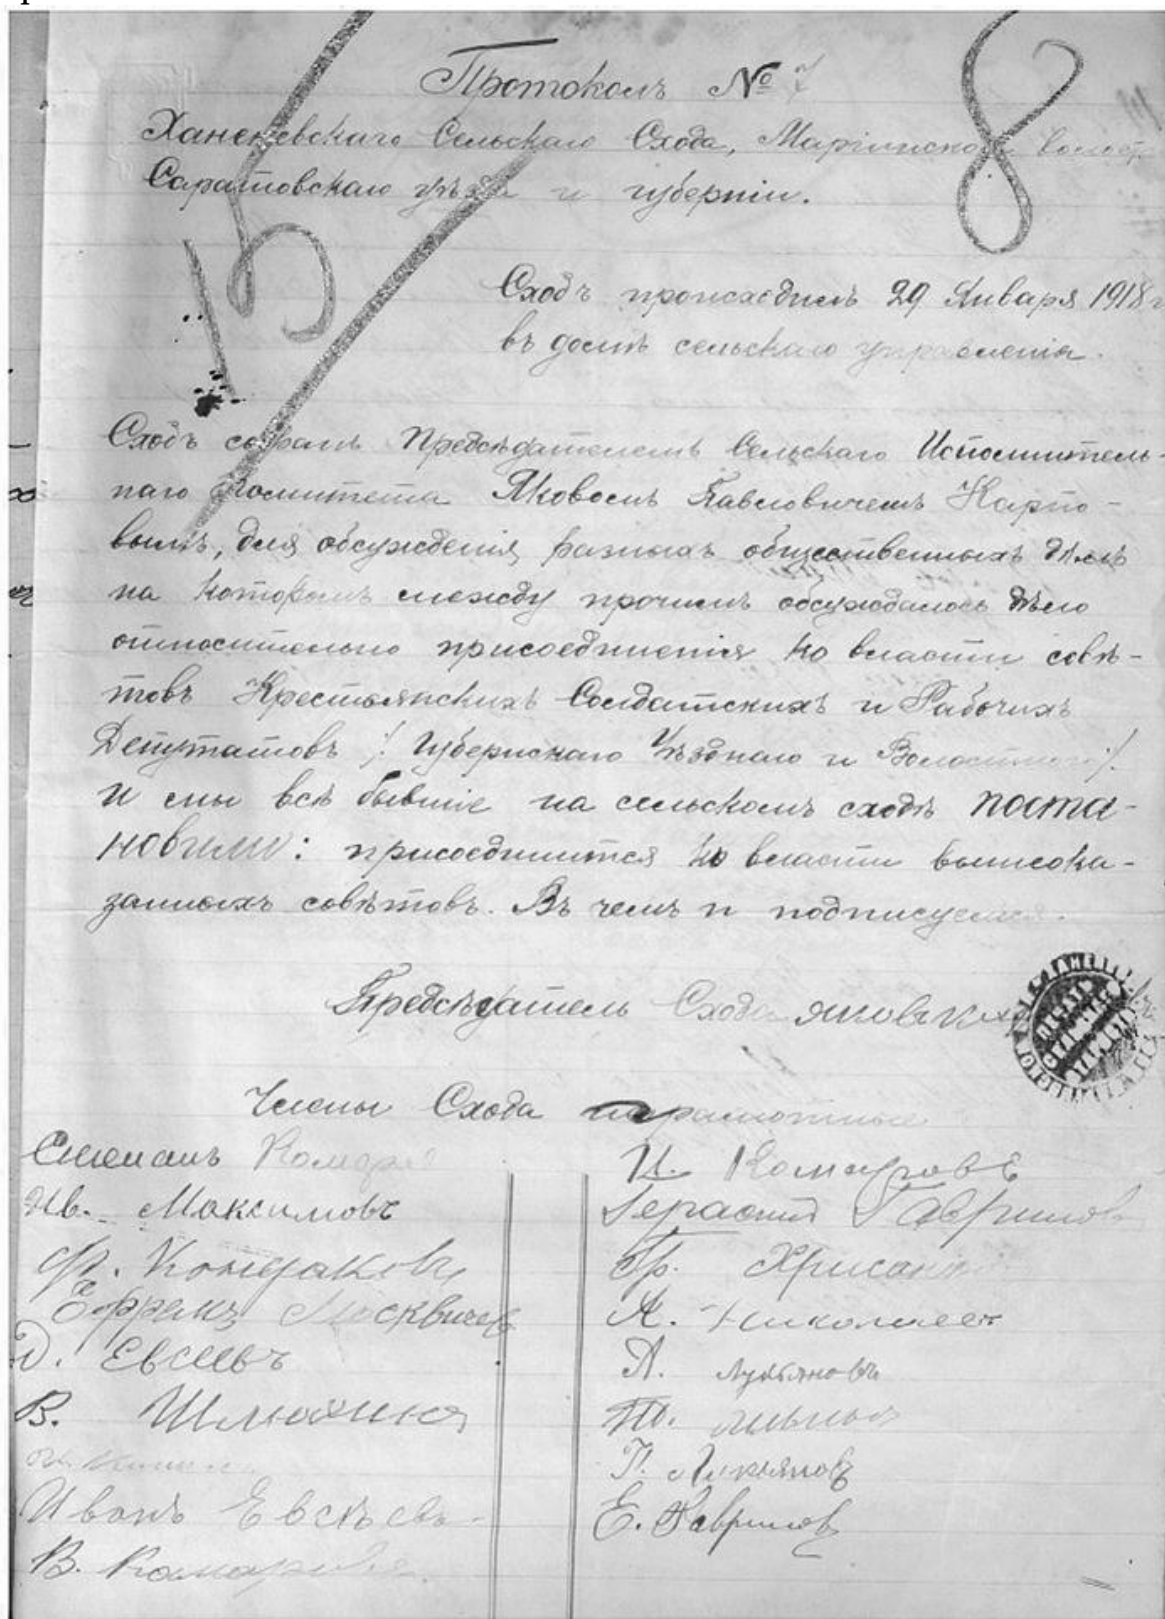 Протоколъ № 7
8
Ханеневскаго Сельскаго Схода, Маріинской волост
Саратовскаго уѣзда и губерніи.
15
Сходъ происходилъ 29 Января 1918 г
въ домѣ сельскаго управленія.
Сходъ собранъ Предсѣдателемъ Сельскаго Исполнитель-
наго Комитета Яковомъ Павловичемъ Карпо-
вымъ, для обсужденія разныхъ общественныхъ дѣлъ
на которомъ между прочимъ обсуждалось дѣло
относительно присоединенія ко власти совѣ-
товъ Крестьянскихъ Солдатскихъ и Рабочихъ
Депутатовъ /: Губернскаго Уѣзднаго и Волостного :/.
И мы всѣ бывшіе на сельскомъ сходѣ поста-
новили: присоединится ко власти вышеока-
занныхъ совѣтовъ. Въ чемъ и подписуемся.
Предсѣдатель Схода Яковъ
Члены Схода
Степанъ
И. Комаровъ
Ив. Максимовъ
Герасим Гаврилов
Ф. Кондаковъ
Гр. Хрисанф
Ефремъ Москвичев
А. Николаев
Д. Евсеевъ
А. Лукьяновъ
В. Шлюхина
Т.
П. Лукьяновъ
Иванъ Евсѣевъ
Е. Гаврилов
В. Комаровъ